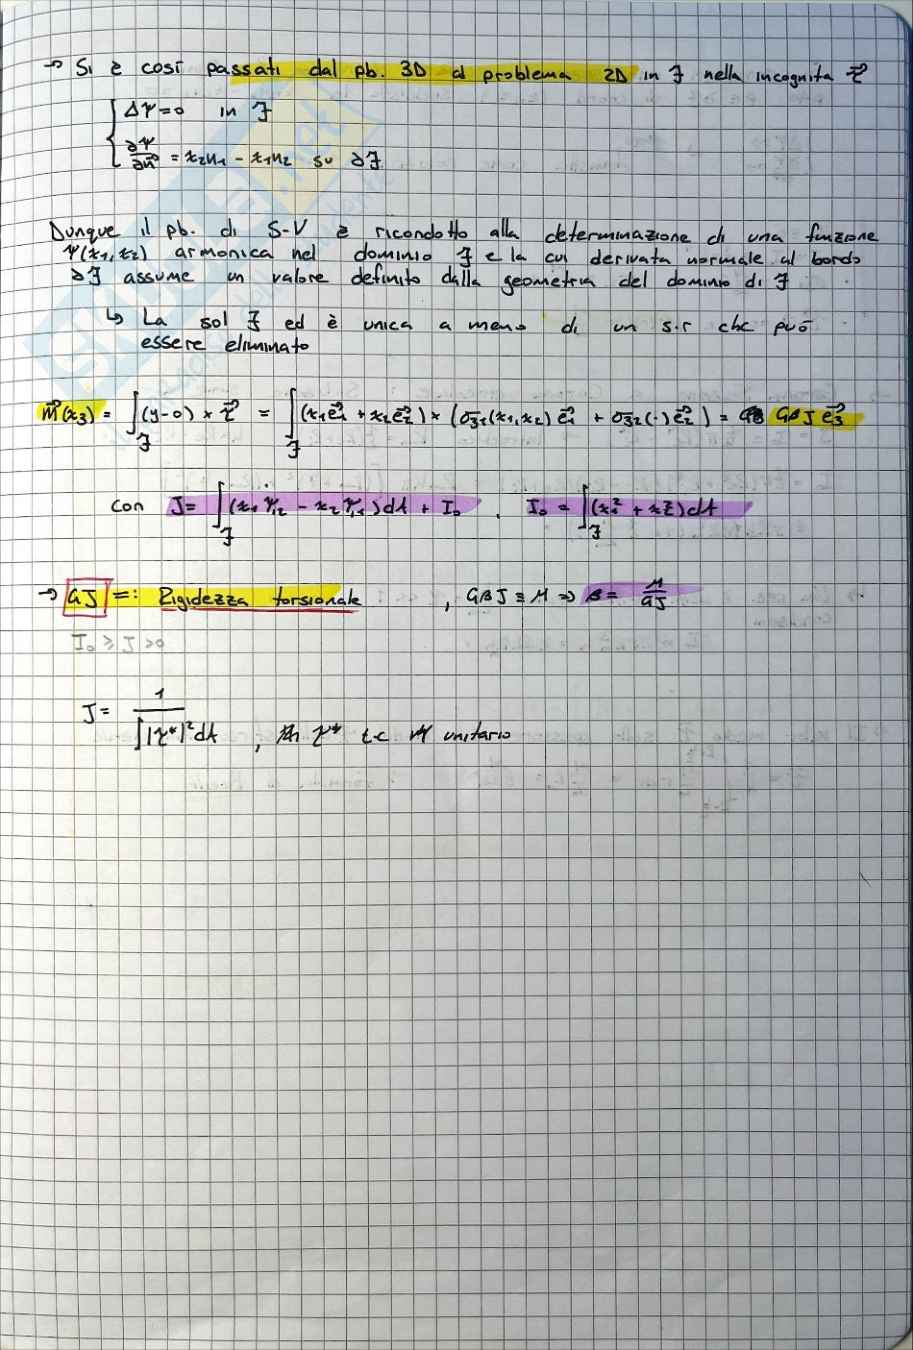 → Si è così passati dal pb. 3D al problema 2D in F nella incognita τ⃗
{ ΔΨ=0 in F
∂Ψ/∂n⃗ = x₂n₁ - x₁n₂ su ∂F
Dunque il pb. di S-V è ricondotto alla determinazione di una funzione
Ψ(x₁,x₂) armonica nel dominio F e la cui derivata normale al bordo
∂F assume un valore definito dalla geometria del dominio di F
↳ La sol ∃ ed è unica a meno di un s.r che può
essere eliminato
m⃗(x₃) = ∫_F (y-o) × τ⃗ = ∫_F (x₁e⃗₁ + x₂e⃗₂) × (σ₃₁(x₁,x₂) e⃗₁ + σ₃₂(·) e⃗₂) = GβJ e⃗₃
con J = ∫_F (x₁Ψ,₂ - x₂Ψ,₁)dA + I₀ , I₀ = ∫_F (x₁² + x₂²)dA
→ GJ =: Rigidezza torsionale , GβJ ≡ M ⇒ β = M/GJ
I₀ ≥ J > 0
J = 1/∫|τ*|²dA , τ* t.c M unitario